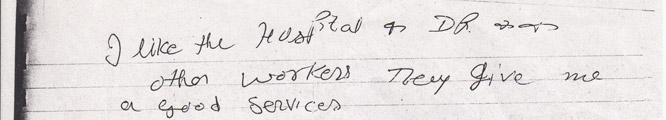 I like the Hospital & DR
other workers They give me
a good services